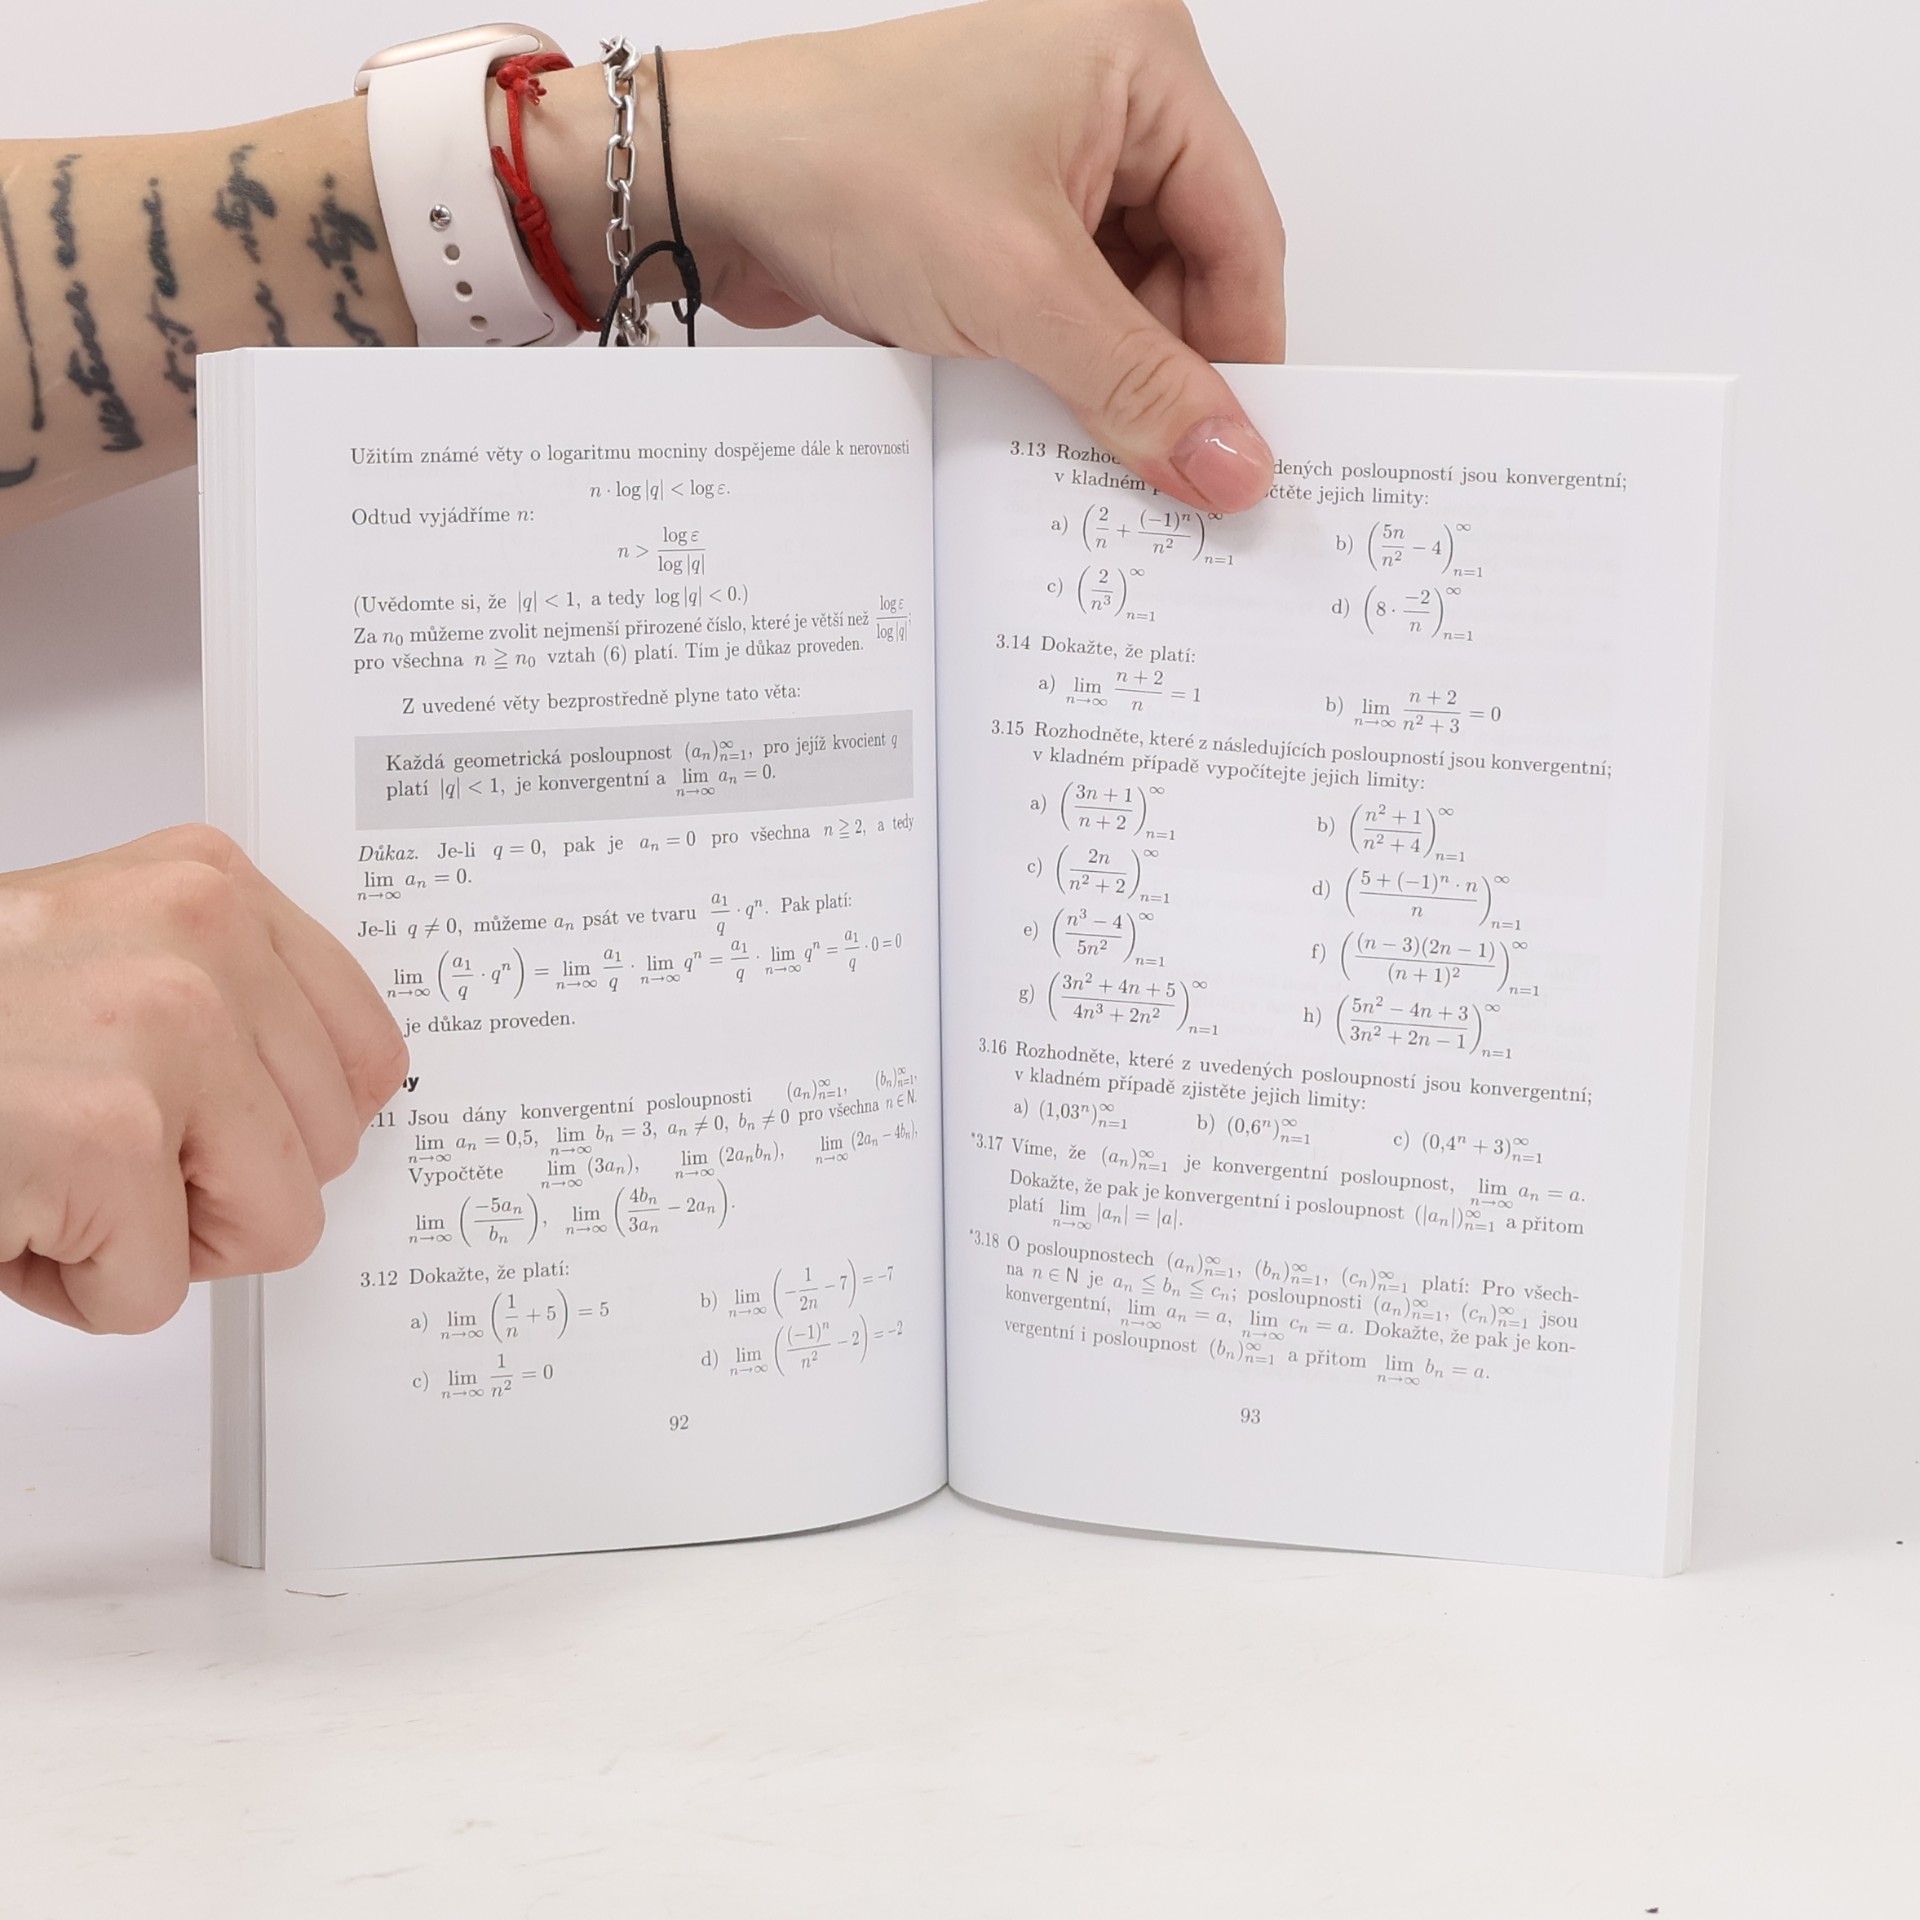 Užitím známé věty o logaritmu mocniny dospějeme dále k nerovnosti
n · log |q| < log ε.
Odtud vyjádříme n:
n > log ε / log |q|
(Uvědomte si, že |q| < 1, a tedy log |q| < 0.)
Za n₀ můžeme zvolit nejmenší přirozené číslo, které je větší než log ε / log |q|;
pro všechna n ≧ n₀ vztah (6) platí. Tím je důkaz proveden.
Z uvedené věty bezprostředně plyne tato věta:
Každá geometrická posloupnost (aₙ)ₙ₌₁^∞, pro jejíž kvocient q
platí |q| < 1, je konvergentní a lim_{n→∞} aₙ = 0.
Důkaz. Je-li q = 0, pak je aₙ = 0 pro všechna n ≧ 2, a tedy
lim_{n→∞} aₙ = 0.
Je-li q ≠ 0, můžeme aₙ psát ve tvaru a₁/q · qⁿ. Pak platí:
lim_{n→∞} (a₁/q · qⁿ) = lim_{n→∞} a₁/q · lim_{n→∞} qⁿ = a₁/q · lim_{n→∞} qⁿ = a₁/q · 0 = 0
je důkaz proveden.
.11 Jsou dány konvergentní posloupnosti (aₙ)ₙ₌₁^∞, (bₙ)ₙ₌₁^∞,
lim_{n→∞} aₙ = 0,5, lim_{n→∞} bₙ = 3, aₙ ≠ 0, bₙ ≠ 0 pro všechna n ∈ N.
Vypočtěte lim_{n→∞} (3aₙ), lim_{n→∞} (2aₙbₙ), lim_{n→∞} (2aₙ − 4bₙ),
lim_{n→∞} (−5aₙ / bₙ), lim_{n→∞} (4bₙ / 3aₙ − 2aₙ).
3.12 Dokažte, že platí:
a) lim_{n→∞} (1/n + 5) = 5 b) lim_{n→∞} (−1/2n − 7) = −7
c) lim_{n→∞} 1/n² = 0 d) lim_{n→∞} ((−1)ⁿ/n² − 2) = −2
92
3.13 dených posloupností jsou konvergentní;
v kladném jejich limity:
a) (2/n + (−1)ⁿ/n²)ₙ₌₁^∞ b) (5n/n² − 4)ₙ₌₁^∞
c) (2/n³)ₙ₌₁^∞ d) (8 · −2/n)ₙ₌₁^∞
3.14 Dokažte, že platí:
a) lim_{n→∞} (n + 2)/n = 1 b) lim_{n→∞} (n + 2)/(n² + 3) = 0
3.15 Rozhodněte, které z následujících posloupností jsou konvergentní;
v kladném případě vypočítejte jejich limity:
a) ((3n + 1)/(n + 2))ₙ₌₁^∞ b) ((n² + 1)/(n² + 4))ₙ₌₁^∞
c) (2n/(n² + 2))ₙ₌₁^∞ d) ((5 + (−1)ⁿ · n)/n)ₙ₌₁^∞
e) ((n³ − 4)/5n²)ₙ₌₁^∞ f) ((n − 3)(2n − 1)/(n + 1)²)ₙ₌₁^∞
g) ((3n² + 4n + 5)/(4n³ + 2n²))ₙ₌₁^∞ h) ((5n² − 4n + 3)/(3n² + 2n − 1))ₙ₌₁^∞
3.16 Rozhodněte, které z uvedených posloupností jsou konvergentní;
v kladném případě zjistěte jejich limity:
a) (1,03ⁿ)ₙ₌₁^∞ b) (0,6ⁿ)ₙ₌₁^∞ c) (0,4ⁿ + 3)ₙ₌₁^∞
*3.17 Víme, že (aₙ)ₙ₌₁^∞ je konvergentní posloupnost, lim_{n→∞} aₙ = a.
Dokažte, že pak je konvergentní i posloupnost (|aₙ|)ₙ₌₁^∞ a přitom
platí lim_{n→∞} |aₙ| = |a|.
*3.18 O posloupnostech (aₙ)ₙ₌₁^∞, (bₙ)ₙ₌₁^∞, (cₙ)ₙ₌₁^∞ platí: Pro všech-
na n ∈ N je aₙ ≦ bₙ ≦ cₙ; posloupnosti (aₙ)ₙ₌₁^∞, (cₙ)ₙ₌₁^∞ jsou
konvergentní, lim_{n→∞} aₙ = a, lim_{n→∞} cₙ = a. Dokažte, že pak je kon-
vergentní i posloupnost (bₙ)ₙ₌₁^∞ a přitom lim_{n→∞} bₙ = a.
93